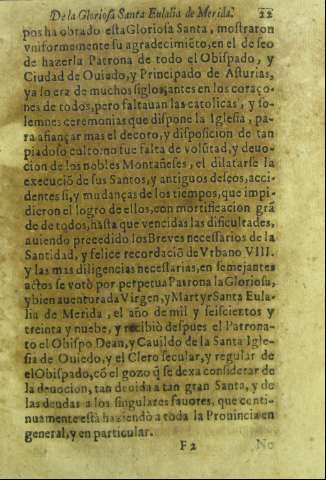 De la Gloriosa Santa Eulalia de Merida. 22
pos ha obrado esta Gloriosa Santa, mostraron
vniformemente su agradecimiẽto, en el deseo
de hazerla Patrona de todo el Obispado, y
Ciudad de Ouiedo, y Principado de Asturias,
ya lo era de muchos siglos, antes en los coraço-
nes de todos, pero faltauan las catolicas, y so-
lemnes ceremonias que dispone la Iglesia, pa-
ra afiançar mas el decoro, y disposicion de tan
piadoso culto: no fue falta de volũtad, y deuo-
cion de los nobles Montañeses, el dilatarse la
execuciõ de sus Santos, y antiguos deseos, acci-
dentes si, y mudanças de los tiempos, que impi-
dieron el logro de ellos, con mortificacion grã
de de todos, hasta que vencidas las dificultades,
auiendo precedido los Breves necessarios de la
Santidad, y felice recordaciõ de Vrbano VIII.
y las mas diligencias necessarias, en semejantes
actos se votò por perpetua Patrona la Gloriosa,
y bien auenturada Virgen, y Martyr Santa Eula-
lia de Merida, el año de mil y seiscientos y
treinta y nuebe, y recibiò despues el Patrona-
to el Obispo Dean, y Cauildo de la Santa Igle-
sia de Ouiedo, y el Clero secular, y regular de
el Obispado, cõ el gozo q̃ se dexa considerar de
la deuocion, tan deuida a tan gran Santa, y de
las deudas a los singulares fauores, que conti-
nuamente està haziendo a toda la Prouincia en
general, y en particular.
F 2 No